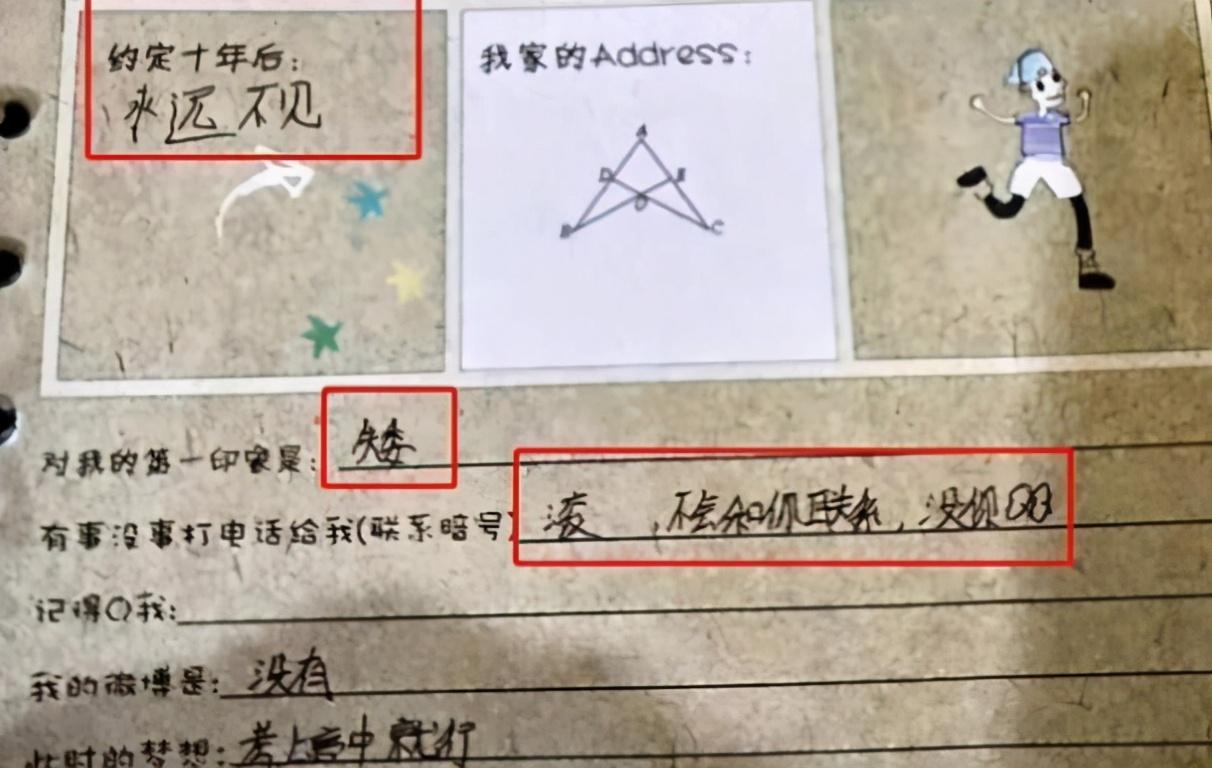 约定十年后：
永远不见
我家的Address：
A
D E
O
B C
对我的第一印象是：矮
有事没事打电话给我(联系暗号)滚，不会和你联系，没你QQ
记得Q我：
我的微博是：没有
此时的梦想：考上高中就行